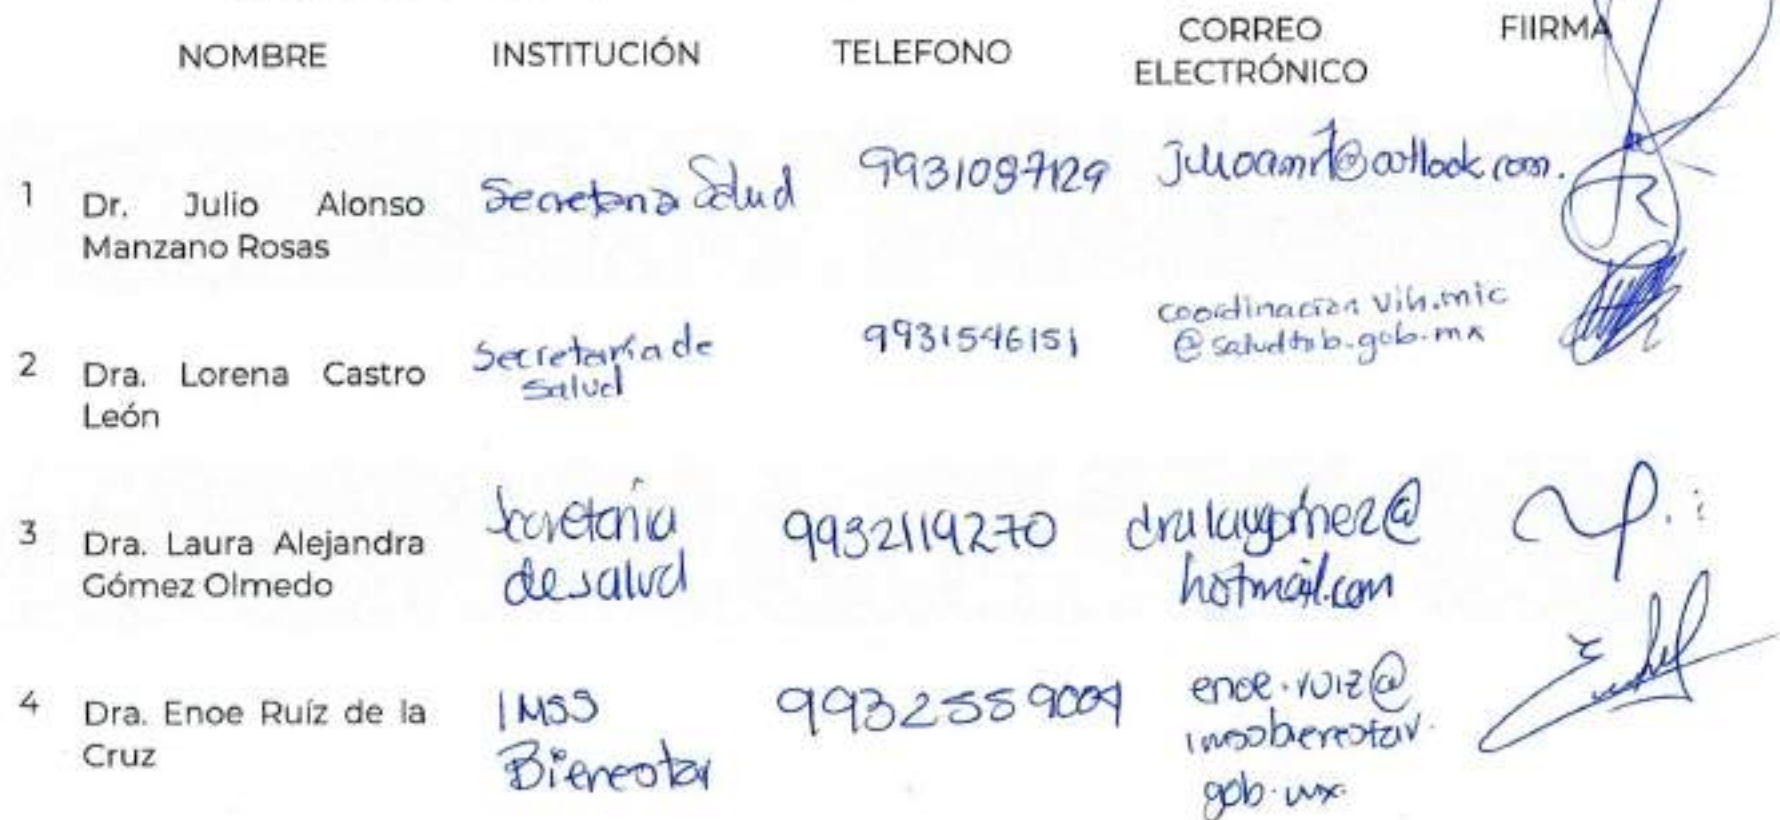 NOMBRE INSTITUCIÓN TELEFONO CORREO ELECTRÓNICO FIIRMA
1 Dr. Julio Alonso Manzano Rosas Secretaria Salud @outlook.com.
2 Dra. Lorena Castro León Secretaría de Salud 9931546151 coordinacion vih.mic @saludtab.gob.mx
3 Dra. Laura Alejandra Gómez Olmedo Secretaría de salud 9932119270 dralaugomez@ hotmail.com
4 Dra. Enoe Ruíz de la Cruz IMSS Bienestar 9932559009 enoe.ruiz@ imssbienestar. gob.mx